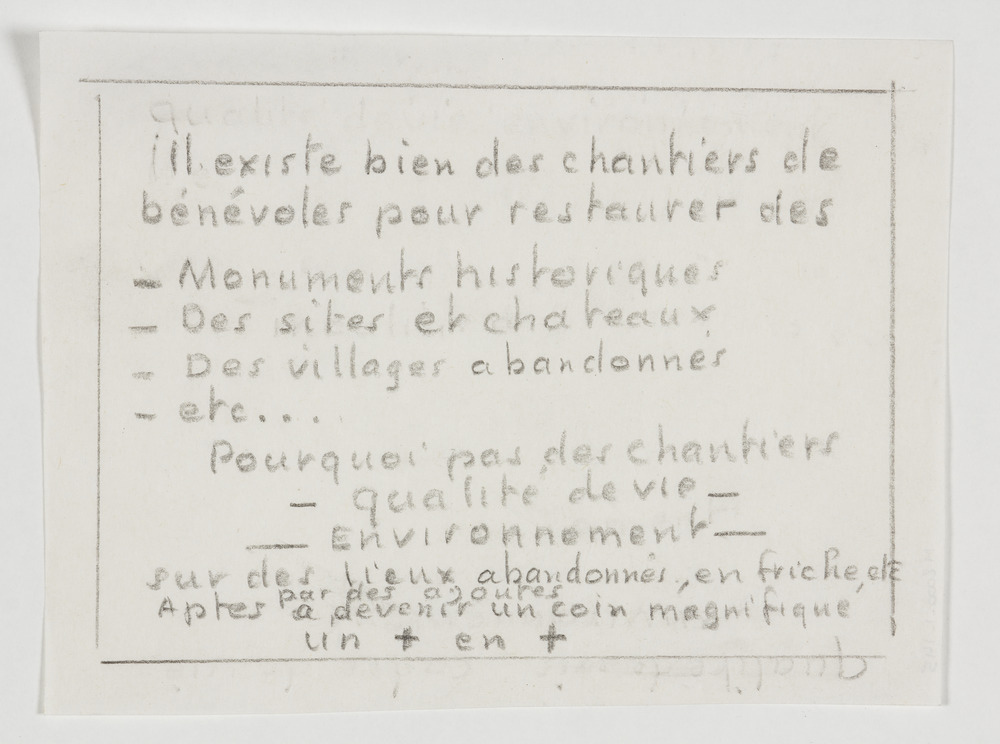 Il existe bien des chantiers de
bénévoles pour restaurer des
- Monuments historiques
- Des sites et chateaux
- Des villages abandonnés
- etc...
Pourquoi pas des chantiers
- qualité de vie -
— Environnement —
sur des lieux abandonnés, en friche, etc
par des ajoutes
Aptes à devenir un coin magnifique
un + en +